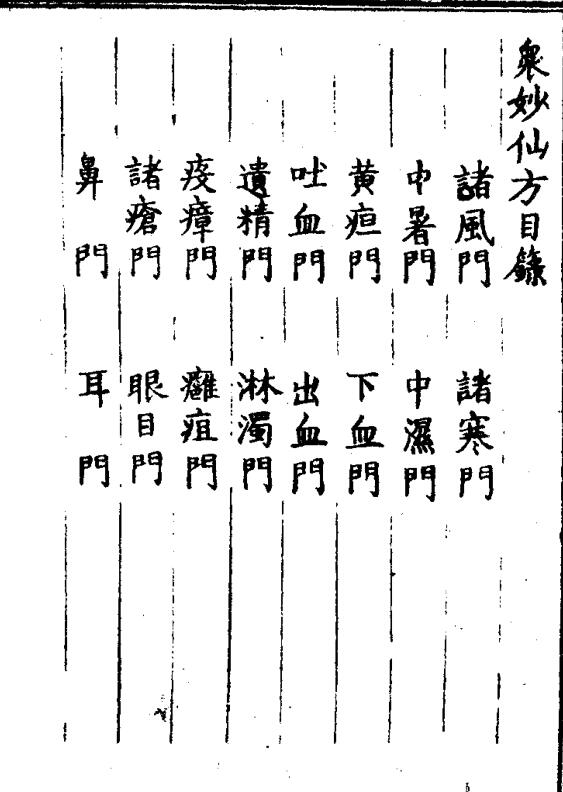 眾妙仙方目錄
諸風門 諸寒門
中暑門 中濕門
黄疸門 下血門
吐血門 出血門
遺精門 淋濁門
疫瘴門 癰疽門
諸瘡門 眼目門
鼻門 耳門